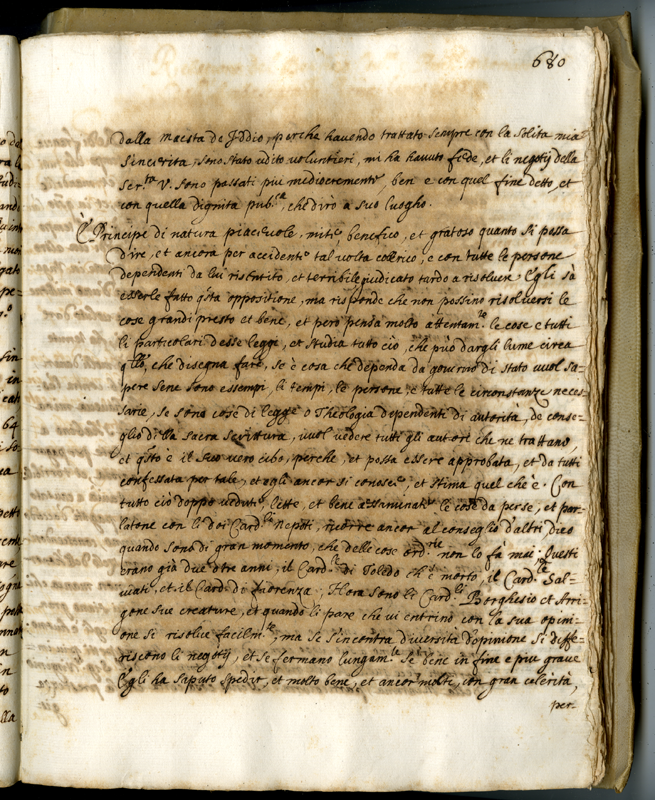 680
dalla maestà de Iddio, perche havendo trattato sempre con la solita mia
sincerità, sono stato udito voluntieri, mi ha havuto fede, et li negotij della
Ser.ta V. sono passati piu mediocremente, ben e con quel fine detto, et
con quella dignità pub.ca, che dirò a suo luogho.
È Principe di natura piacevole, mite, benefico, et gratoso quanto si possa
dire, et ancora per accidente tal volta colerico, e con tutte le persone
dependenti da lui risentito, et terribile giudicato tardo a risolver Egli sa
esserle fatto q'sta oppositione, ma risponde che non possino risolversi le
cose grandi presto et bene, et però pensa molto attentam.te le cose e tutti
li particolari d'esse legge, et studia tutto ciò, che può dargli lume circa
q'llo, che disegna fare, se è cosa che deponda da governo di stato vuol sa=
pere sene sono essempi, le tempi, le persone, e tutte le circonstanze neces
sarie, se sono cose di legge o Theologia dependenti di autorità, de conse=
glio di lla sacra scrittura, vuol vedere tutti gli autori che ne trattano
et q'sto è il suo vero cibo, perche, et possa essere approbata, et da tutti
confessata per tale, et egli ancor si conosce, et stima quel che è. Con
tutto ciò doppò vedute, lette, et bene essaminate le cose da per se, et par=
latone con li doi Card.li Nepoti, ricorre ancor al conseglio d'altri dico
quando sono di gran momento, che delle cose ord.rie non lo fa mai. Questi
erano già due o tre anni, il Card.le di Toledo ch'è morto, il Card.le Sal=
viati, et il Card. di fiorenza, Hora sono li Card.li Borghesio et Arri=
gone sue creature, et quando li pare che vi entrino con la sua opini=
one si risolve facilm.te, ma se s'incontra diversità d'opinione si diffe=
riscono li negotij, et se fermano lungam.te se bene in fine e piu grave
Egli ha saputo spedir, et molto bene, et ancor molti, con gran celerità,
per